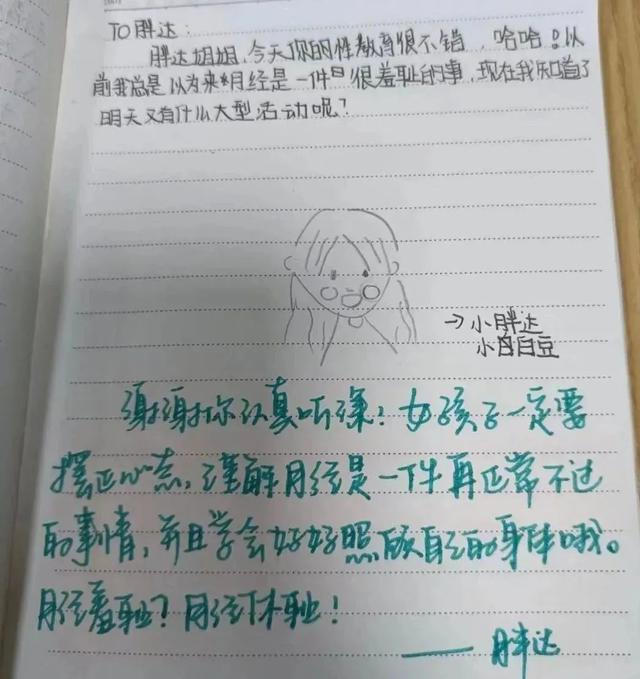 TO胖达：
胖达姐姐，今天你的性教育很不错，哈哈！以
前我总是以为来月经是一件很羞耻的事，现在我知道了
明天又有什么大型活动呢？
→小胖达
小白豆
谢谢你认真听课！女孩子一定要
摆正心态，理解月经是一件再正常不过
的事情，并且学会好好照顾自己的身体哦。
月经羞耻？月经不耻！
——胖达